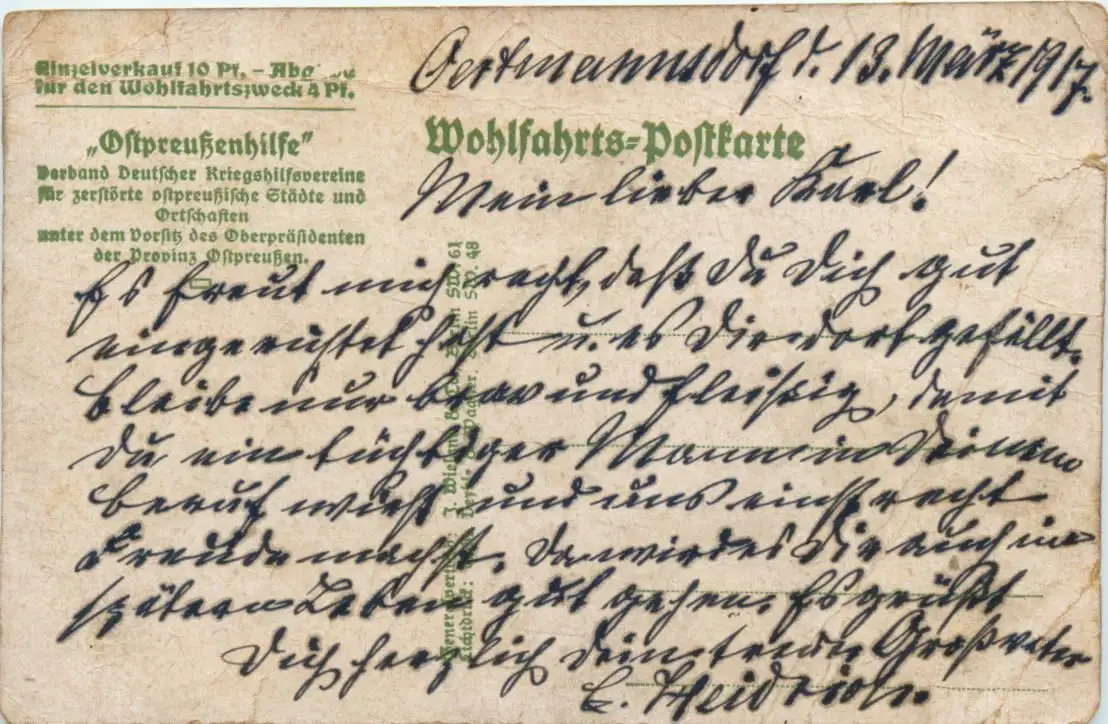 Oertmannsdorf d. 13. März 1917.
Einzelverkauf 10 Pf. –
für den Wohlfahrtszweck 4 Pf.
„Ostpreußenhilfe"
Verband Deutscher Kriegshilfsvereine
für zerstörte ostpreußische Städte und
Ortschaften
unter dem Vorsitz des Oberpräsidenten
der Provinz Ostpreußen.
Wohlfahrts-Postkarte
Mein lieber Karl!
Es freut mich recht, daß Du Dich gut
eingerichtet hast u. es Dir dort gefällt.
bleibe nur brav und fleissig, damit
Du ein tüchtiger Mann in Deinem
beruf wirst und uns einst recht
Freude machst. Da wird es Dir auch im
spätern Leben gut gehen. Es grüßt
Dich herzlich Dein treuer Großvater
E. Heidrich.